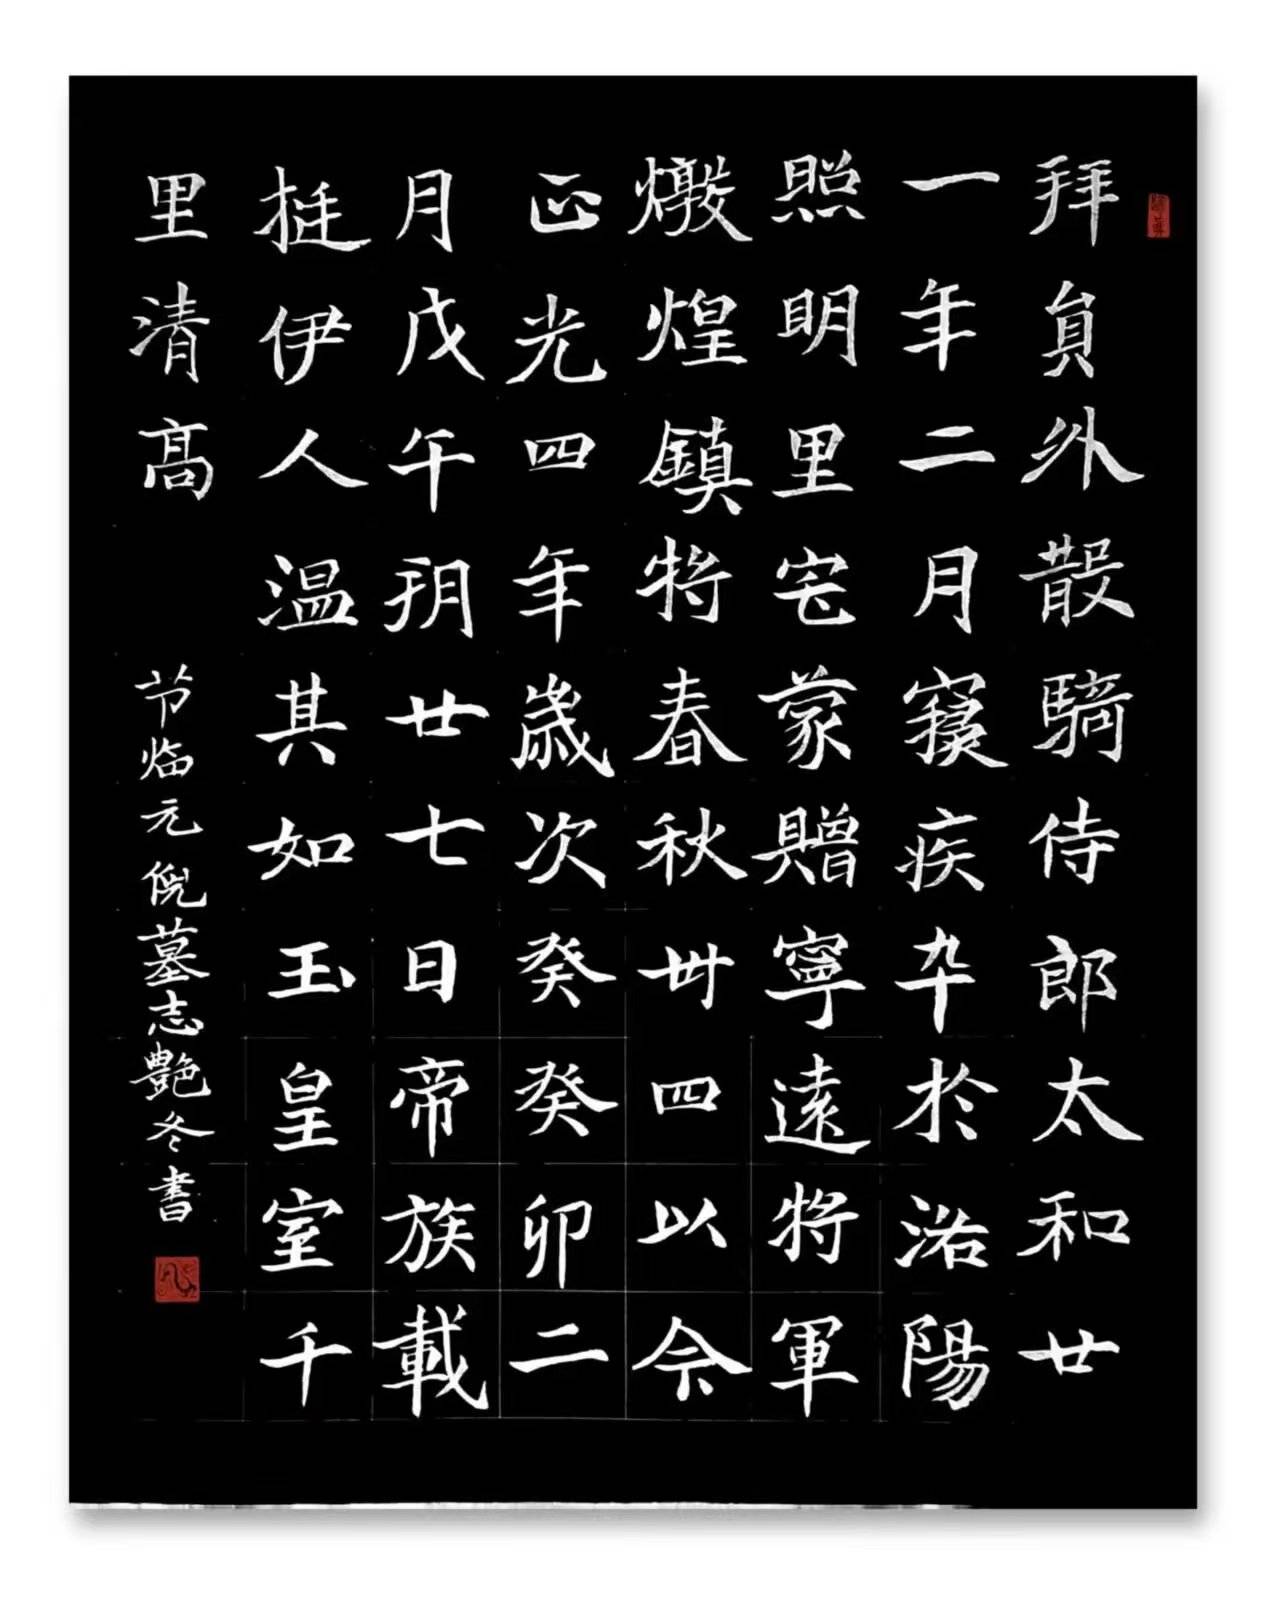 拜員外散騎侍郎太和廿
一年二月寢疾卒於洛陽
照明里宅蒙贈寧遠將軍
燉煌鎮將春秋卅四以今
正光四年歲次癸癸卯二
月戊午玥廿七日帝族載
挺伊人温其如玉皇室千
里清高
节临元倪墓志艷冬書